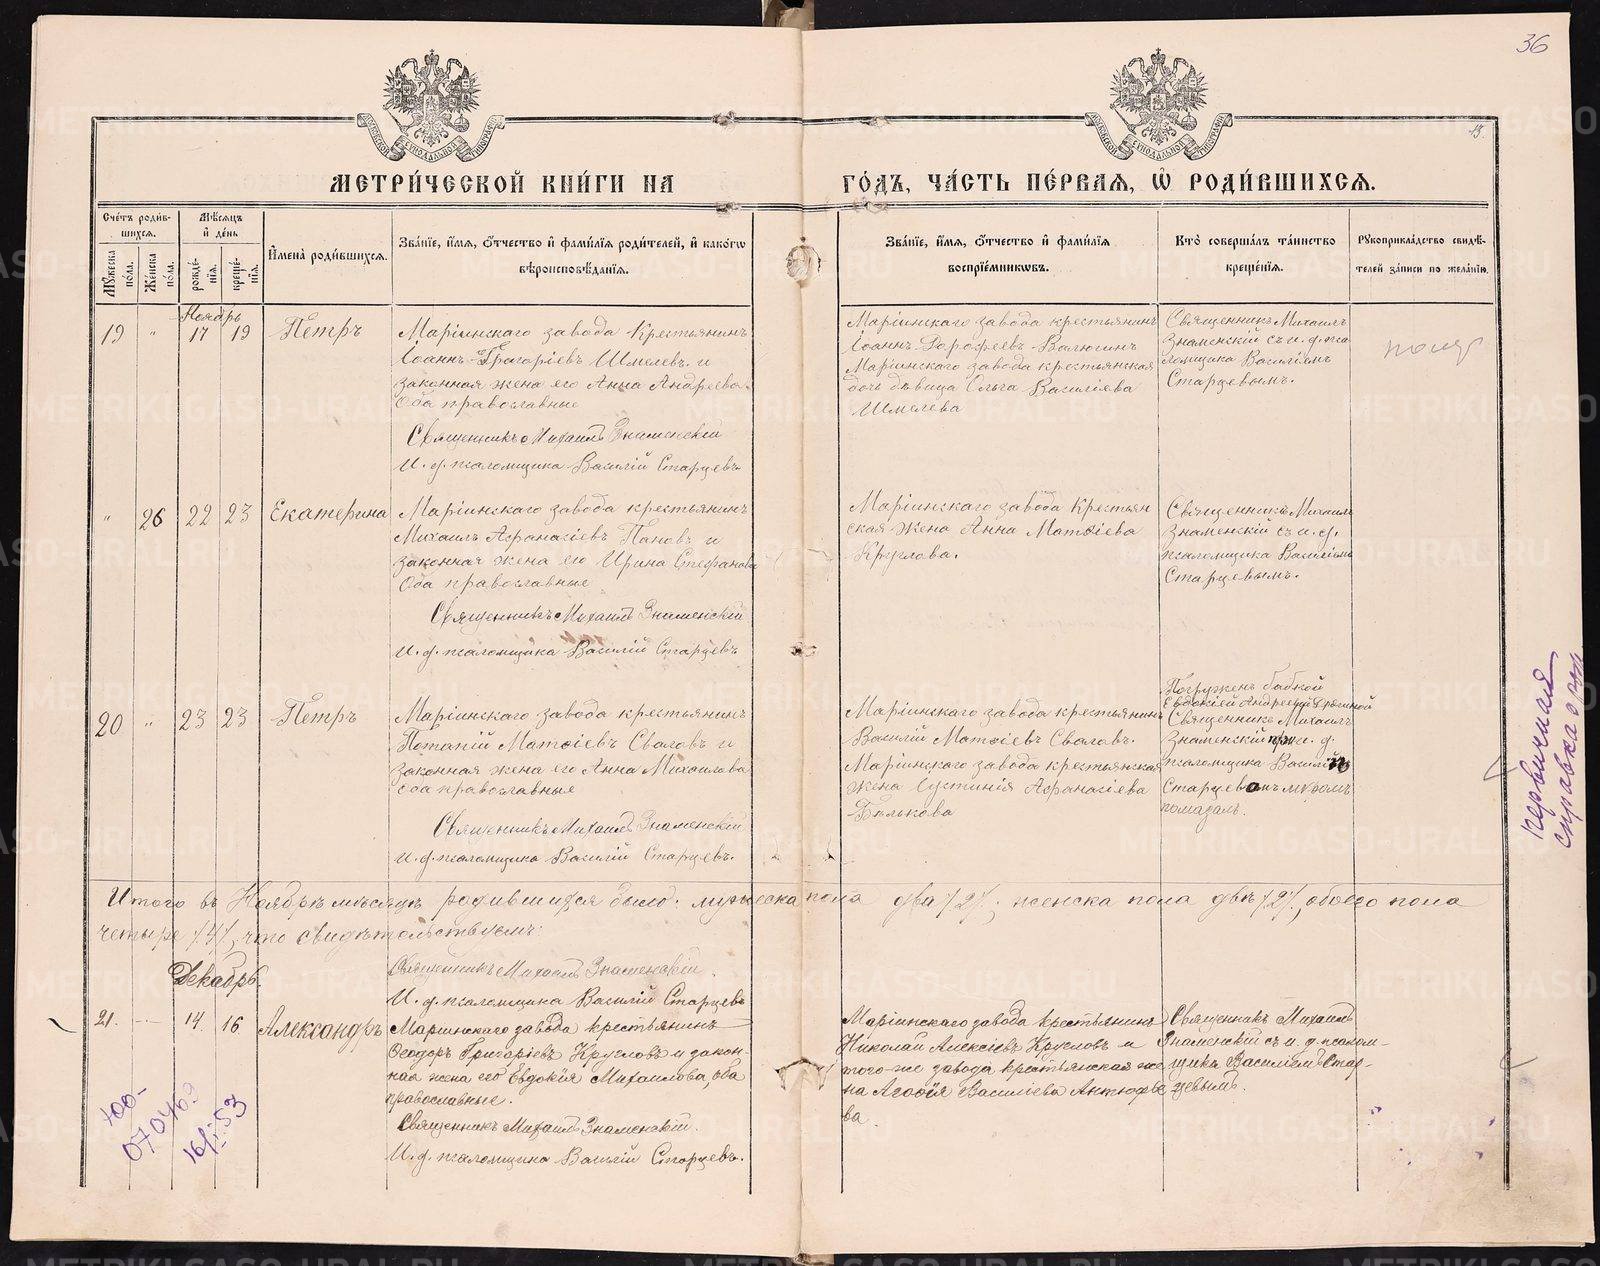 36
13.
МЕТРИ́ЧЕСКОЙ КНИ́ГИ НА
ГО́ДЪ, ЧА́СТЬ ПЕ́РВАѦ, Ѡ РОДИ́ВШИХСѦ.
Сче́тъ роди́в-
шихсѧ.
Мꙋ́жеска по́ла.
Же́нска по́ла.
Мѣ́сѧцъ
и҆ де́нь
рожде́-
нїѧ.
креще́-
нїѧ.
И҆мена̀ роди́вшихсѧ.
Зва́нїе, и҆́мѧ, ѻ҆́тчество и҆ фами́лїѧ роди́телей, и҆ како́гѡ
вѣроисповѣ́данїѧ.
Зва́нїе, и҆́мѧ, ѻ҆́тчество и҆ фами́лїѧ
воспрїе́мникѡвъ.
Кто̀ соверша́лъ та́инство
креще́нїѧ.
Рꙋкоприкла́дство свидѣ́-
телей за́писи по жела́нїю.
Ноябрь
19 " 17 19 Петръ
Маріинскаго завода крестьянинъ
Іоаннъ Григоріевъ Шмелевъ и
законная жена его Анна Андреева.
Оба православные
Священникъ Михаилъ Знаменскій
И. д. псаломщика Василій Старцевъ
Маріинскаго завода крестьянинъ
Іоаннъ Дорофеевъ Валюгинъ
Маріинскаго завода крестьянская
дочь дѣвица Ольга Василіева
Шмелева
Священникъ Михаилъ
Знаменскій съ и. д. пса
ломщика Василіемъ
Старцевымъ.
" 26 22 23 Екатерина
Маріинскаго завода крестьянинъ
Михаилъ Афанасіевъ Пановъ и
законная жена его Ирина Стефанова
Оба православные
Священникъ Михаилъ Знаменскій
И. д. псаломщика Василій Старцевъ
Маріинскаго завода Крестьян
ская жена Анна Матѳіева
Круглова.
Священникъ Михаилъ
Знаменскій съ и. д.
псаломщика Василіемъ
Старцевымъ.
20 " 23 23 Петръ
Маріинскаго завода крестьянинъ
Потапій Матѳіевъ Сваловъ и
законная жена его Анна Михаилова
Оба православные
Священникъ Михаилъ Знаменскій
И. д. псаломщика Василій Старцевъ.
Маріинскаго завода крестьянинъ
Василій Матѳіевъ Сваловъ.
Маріинскаго завода крестьянская
жена Іустинія Афанасіева
Бѣлькова
Погруженъ бабкой
Евдокіей Андреевой
Священникъ Михаилъ
Знаменскій при и. д.
псаломщика Василіи
Старцевомъ мѵромъ
помазалъ.
первичная
справка
Итого въ Ноябрѣ мѣсяцѣ родившихся было: мужеска пола два /2/; женска пола двѣ /2/, обоего пола
четыре /4/, что свидѣтельствуемъ:
Священникъ Михаилъ Знаменскій.
И. д. псаломщика Василій Старцевъ
Декабрь.
21. 14. 16. Александръ
Маріинскаго завода крестьянинъ
Ѳеодоръ Григоріевъ Кругловъ и закон-
ная жена его Евдокія Михаилова, оба
православные.
Священникъ Михаилъ Знаменскій.
И. д. псаломщика Василій Старцевъ.
Маріинскаго завода крестьянинъ
Николай Алексіевъ Кругловъ и
того-же завода крестьянская же
на Агаѳія Василіева Антюфѣе
ва.
Священникъ Михаилъ
Знаменскій съ и. д. псалом-
щика Василіемъ Стар-
цевымъ.